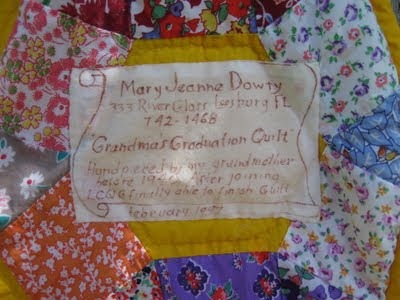 Mary Jeanne Dowty
333 River Glass Leesburg FL
742-1468
"Grandmas Graduation Quilt"
Hand pieced by my grandmother
before 1940. After joining
LCQG finally able to finish Quilt
February